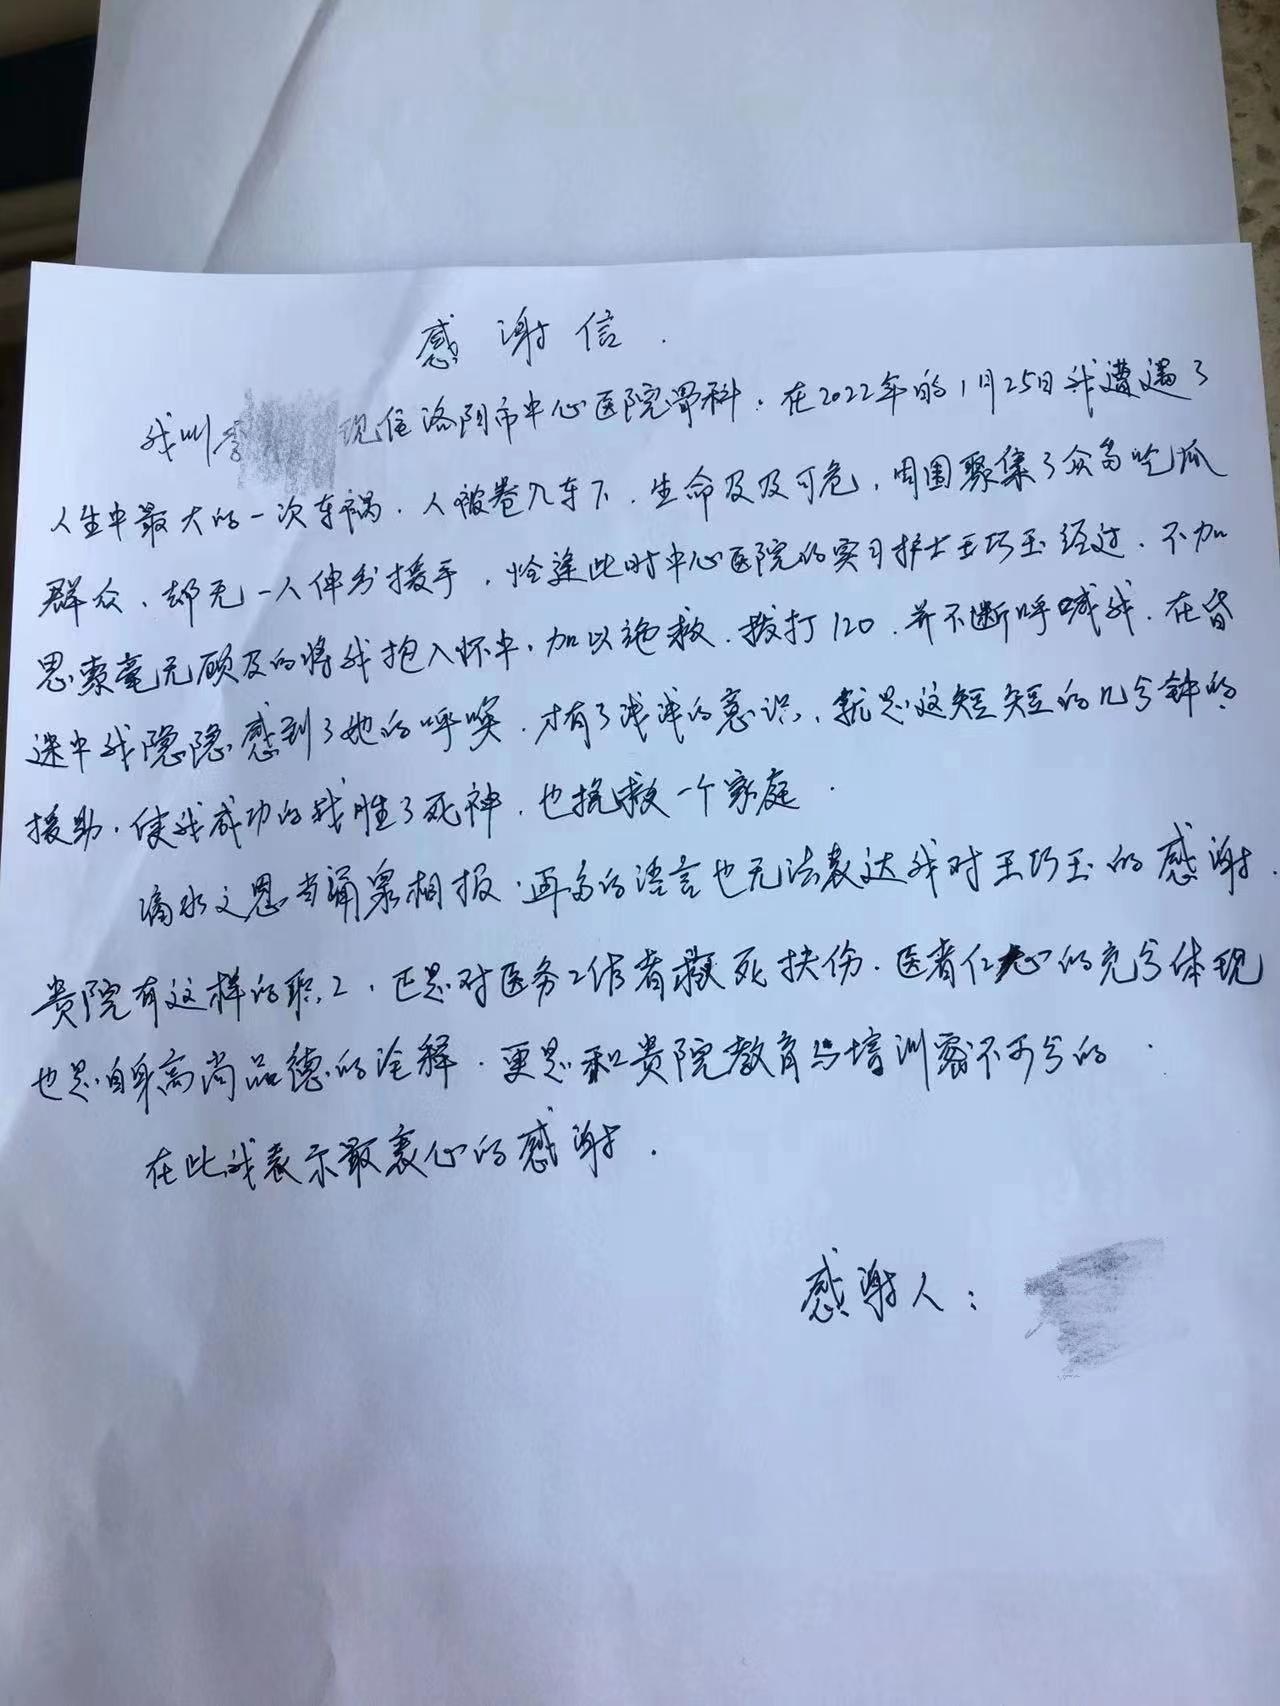 感谢信.
我叫李 现住洛阳市中心医院骨科. 在2022年的1月25日我遭遇了
人生中最大的一次车祸. 人被卷入车下. 生命及及可危, 周围聚集了众多吃瓜
群众, 却无一人伸出援手, 恰逢此时中心医院的实习护士王巧玉经过. 不加
思索毫无顾及的将我抱入怀中, 加以施救. 拨打120. 并不断呼喊我. 在昏
迷中我隐隐感到了她的呼唤. 才有了浅浅的意识, 就是这短短的几分钟的
援助, 使我成功的战胜了死神. 也挽救一个家庭.
滴水之恩当涌泉相报. 再多的语言也无法表达我对王巧玉的感谢.
贵院有这样的职工, 正是对医务工作者救死扶伤. 医者仁心的充分体现
也是自身高尚品德的诠释. 更是和贵院教育与培训密不可分的.
在此我表示最衷心的感谢.
感谢人: